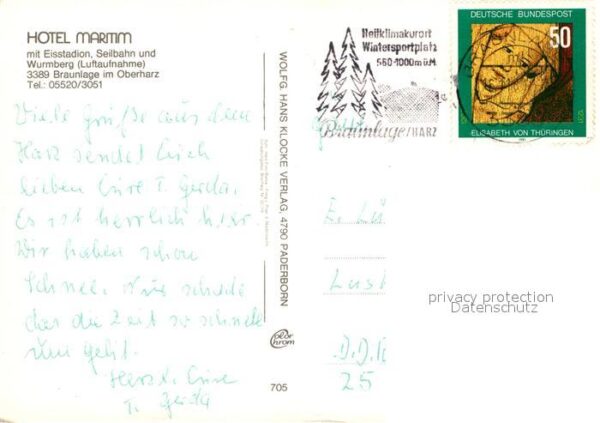 HOTEL MARITIM
mit Eisstadion, Seilbahn und
Wurmberg (Luftaufnahme)
3389 Braunlage im Oberharz
Tel.: 05520/3051
Viele Grüße aus dem
Harz sendet Euch
lieben Eure T. Gerda.
Es ist herrlich hier
Wir haben schon
Schnee. Nur schade
das die Zeit so schnell
rum geht.
Herzl. Eure
T. Gerda
WOLFG. HANS KLOCKE VERLAG, 4790 PADERBORN
color
chrom
705
Heilklimakurort
Wintersportplatz
560-1000m ü.M.
Braunlage/HARZ
DEUTSCHE BUNDESPOST
50
ELISABETH VON THÜRINGEN
E. Lü
Lust
D.D.R
25
privacy protection
Datenschutz